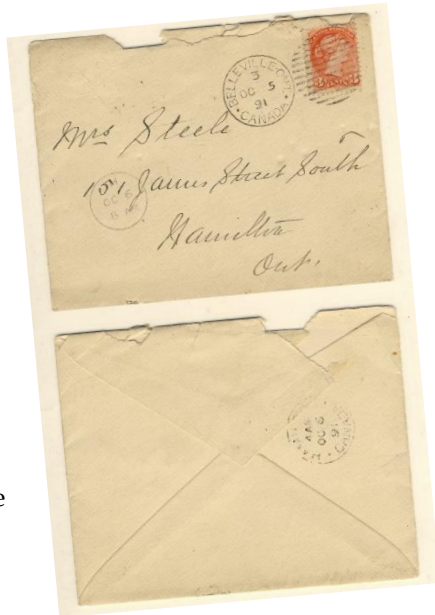 BELLEVILLE·ONT.
3
OC 5
91
CANADA
Mrs Steele
151 James Street South
Hamilton
Ont.
OC 6
8
AM
OC 6
91
CANADA
e